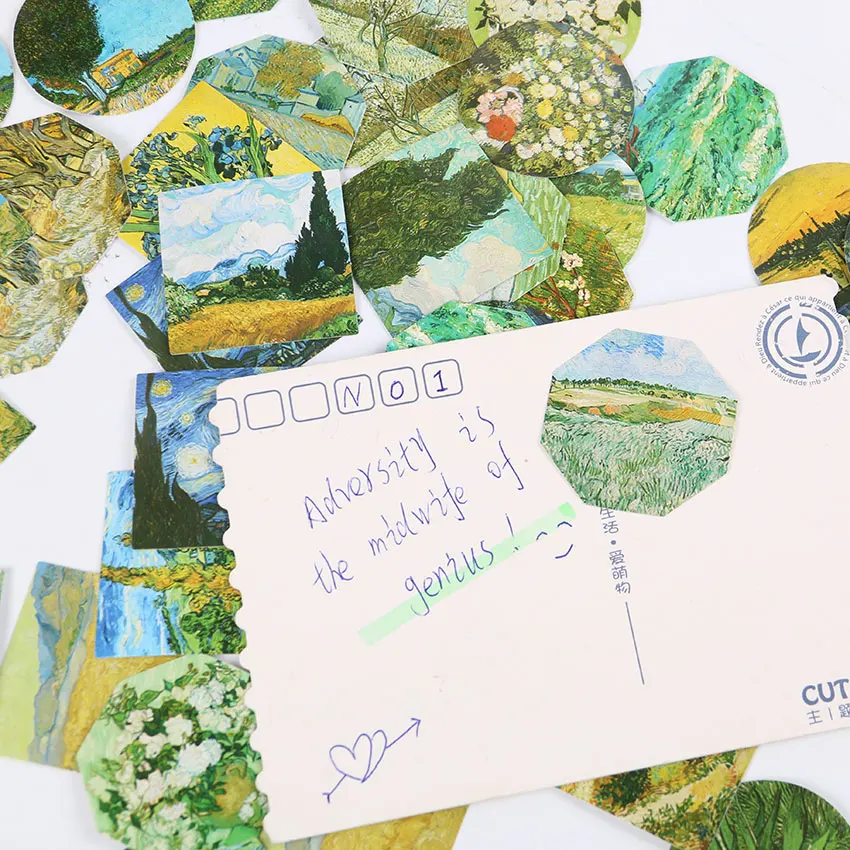 NO1
Adversity is
the midwife of
genius!
生活·爱萌物
CUT
主|题
Rendez à César ce qui appartient à
Dieu ce qui appartient à